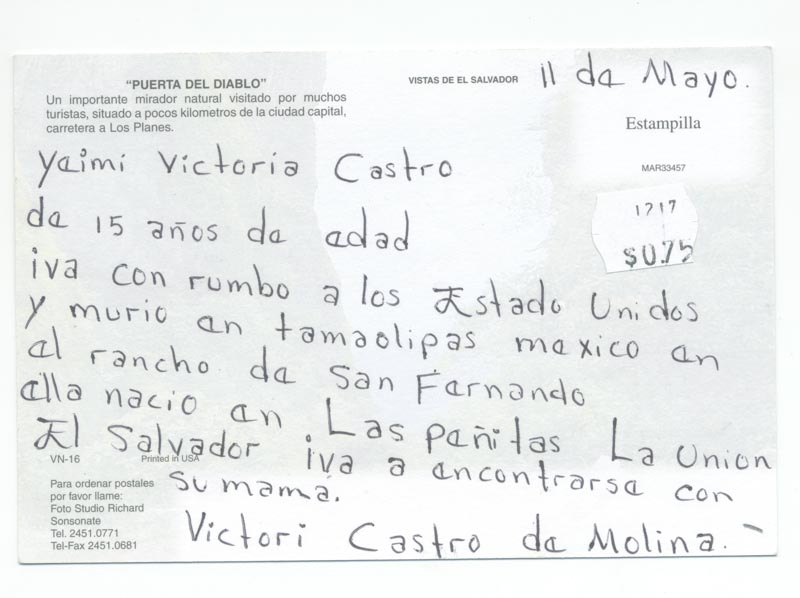 "PUERTA DEL DIABLO"
Un importante mirador natural visitado por muchos
turistas, situado a pocos kilometros de la ciudad capital,
carretera a Los Planes.
VISTAS DE EL SALVADOR
11 de Mayo.
Estampilla
MAR33457
1217
$0.75
Yaimi Victoria Castro
de 15 años de edad
iva con rumbo a los Estado Unidos
y murio en tamaolipas mexico en
el rancho de San Fernando
ella nacio en Las peñitas La Union
El Salvador iva a encontrarse con
su mama.
Victori Castro de Molina.
VN-16
Printed in USA
Para ordenar postales
por favor llame:
Foto Studio Richard
Sonsonate
Tel. 2451.0771
Tel-Fax 2451.0681